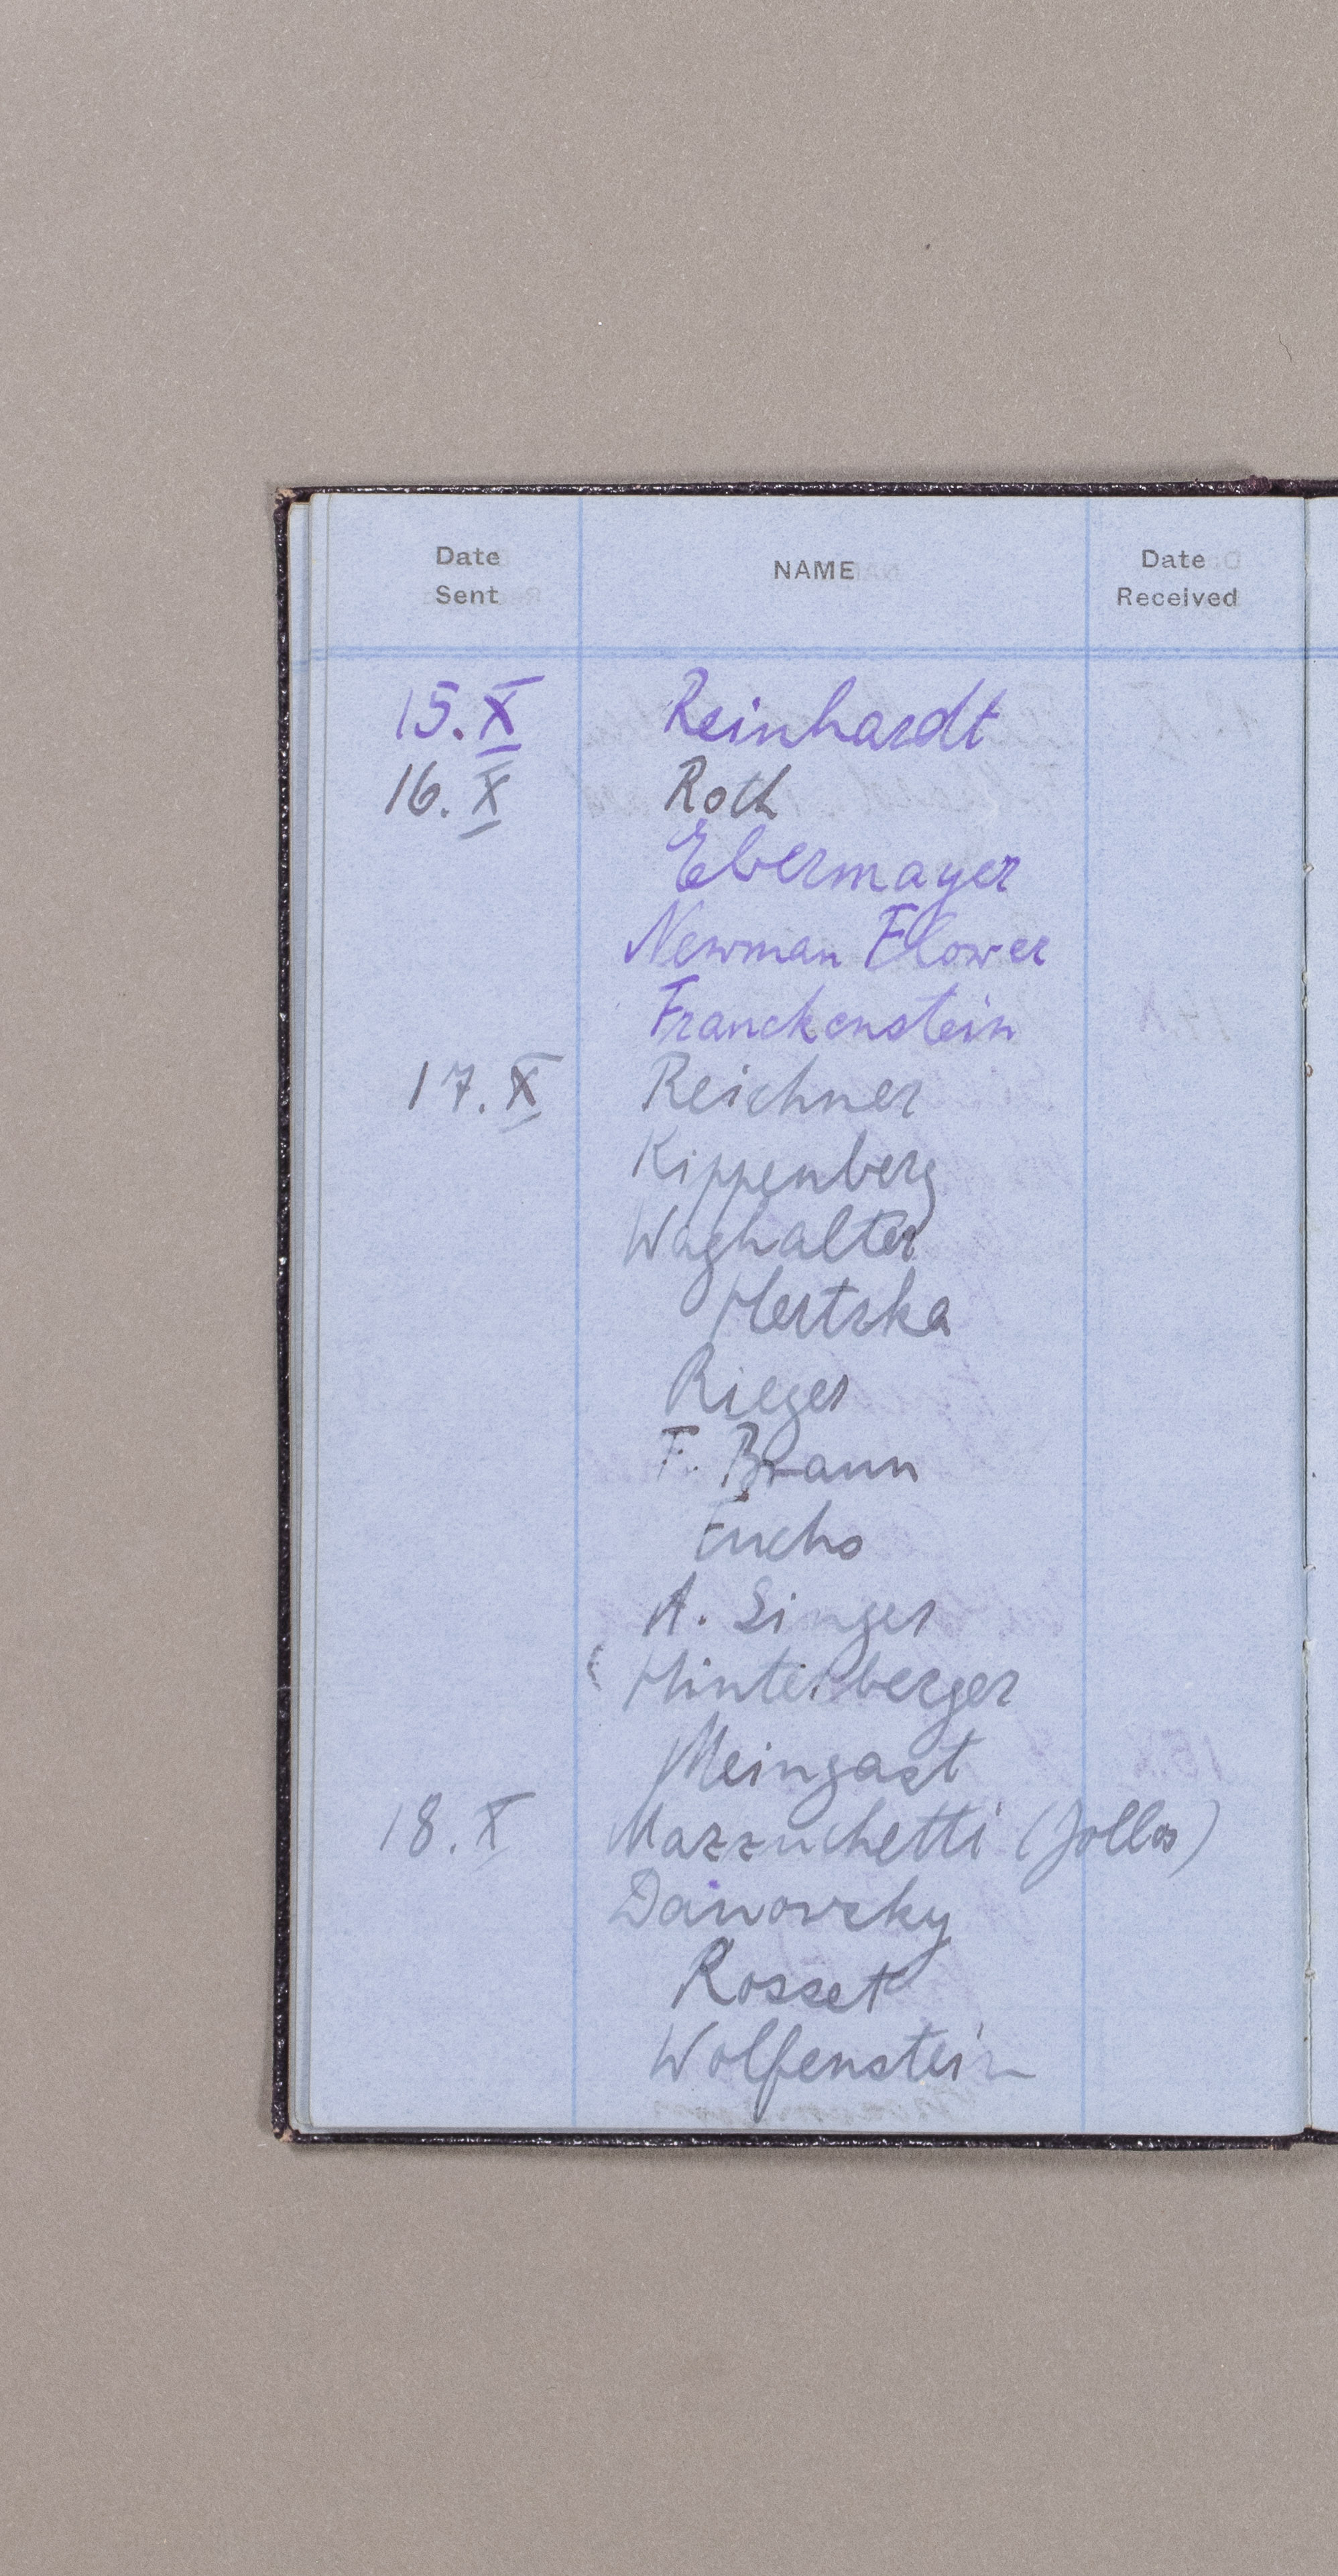 Date Sent NAME Date Received
15.X Reinhardt
16.X Roth
Ebermayer
Newman Flower
Franckenstein
17.X Reichner
Kippenberg
Waghalter
Hertzka
Rieger
F. Braun
Fuchs
A. Singer
( Hinterberger
Meingast
18.X Mazzuchetti (Jollos)
Danowsky
Rosset
Wolfenstein